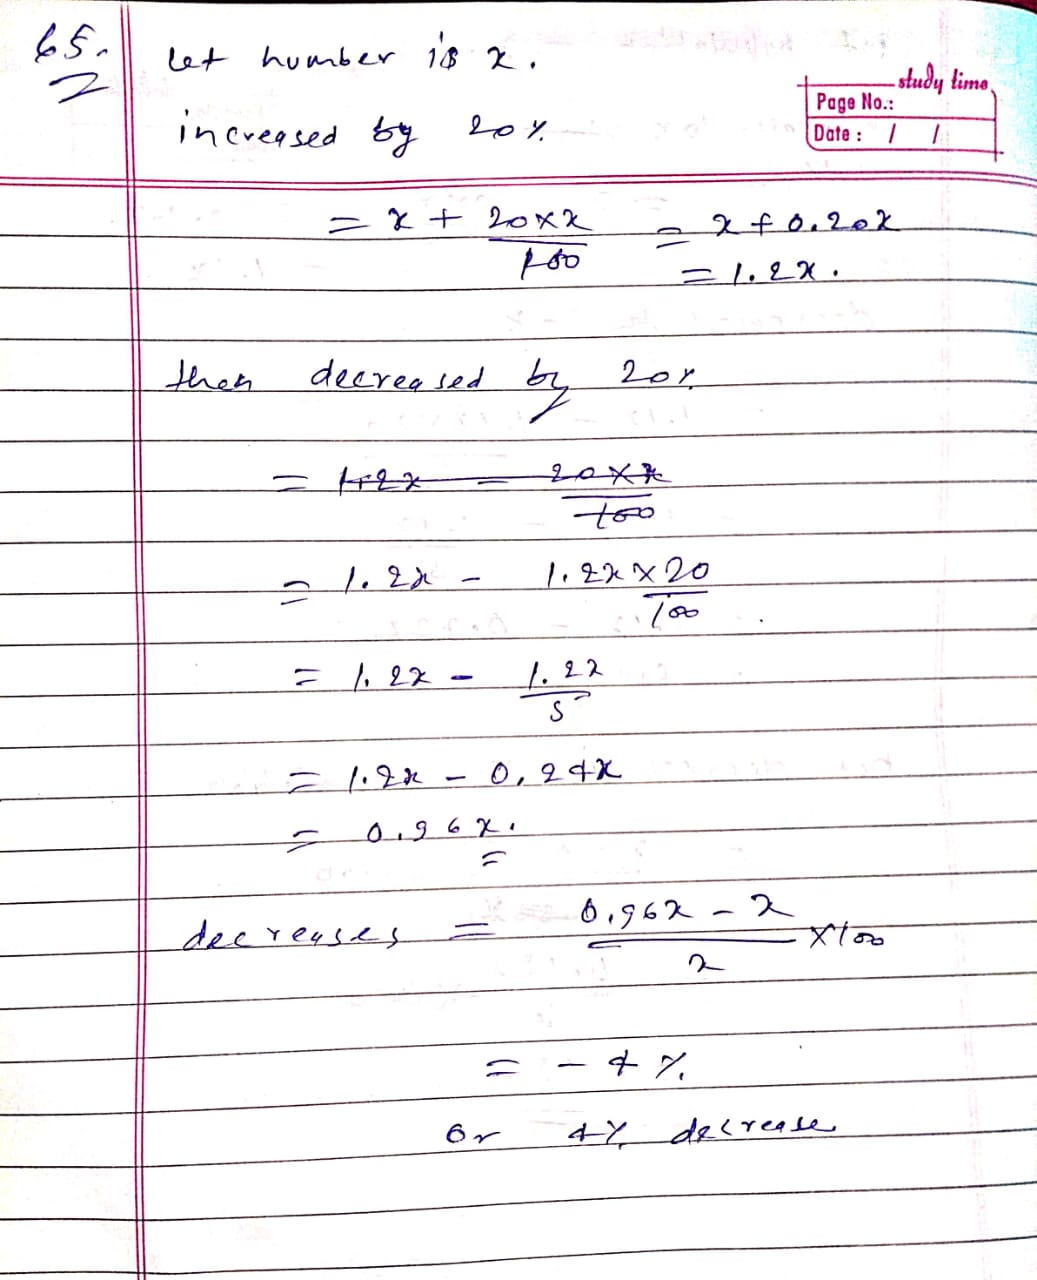 65.
let number is x.
study time
Page No.:
increased by 20%
Date : / /
= x + 20×x/100 = x + 0.20x
= 1.2x.
then decreased by 20%
= 1.2x - 20×x/100
= 1.2x - 1.2x×20/100
= 1.2x - 1.2x/5
= 1.2x - 0.24x
= 0.96x.
decreases = 0.96x - x/x ×100
= - 4 %.
or 4% decrease